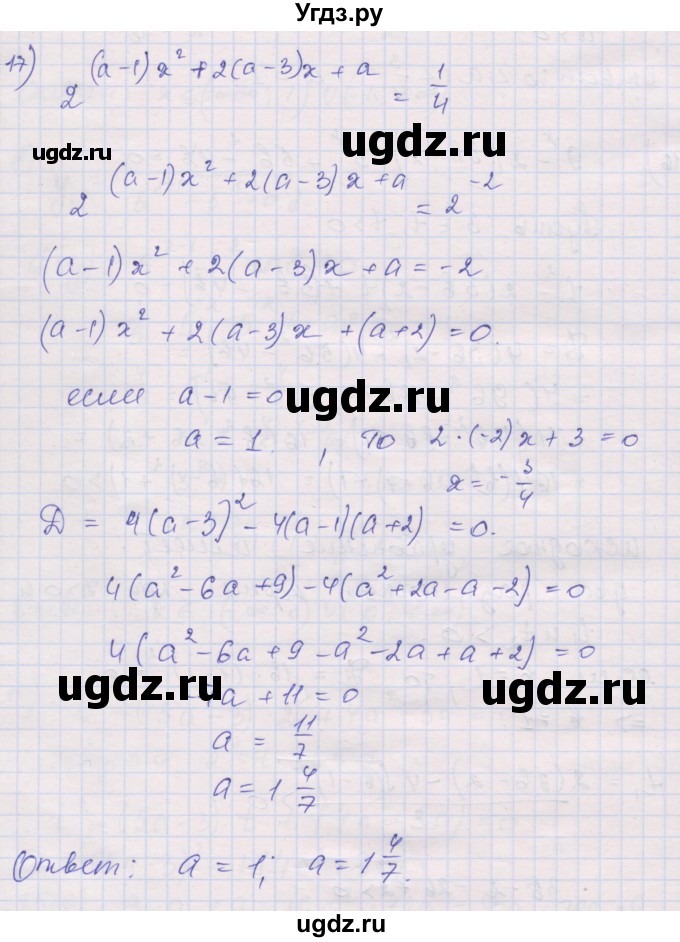 Угдз.ру
17) 2^((a-1)x²+2(a-3)x+a) = 1/4
ugdz.ru ugdz.ru ugdz.ru
2^((a-1)x²+2(a-3)x+a) = 2^(-2)
(a-1)x²+2(a-3)x+a=-2
(a-1)x²+2(a-3)x+(a+2)=0.
если a-1=0 ugdz.ru
a=1. , то 2·(-2)x+3=0
x=-3/4
D = 4(a-3)²-4(a-1)(a+2) =0.
ugdz.ru
4(a²-6a+9)-4(a²+2a-a-2)=0
4(a²-6a+9-a²-2a+a+2)=0
ugdz.ru a+11=0 ugdz.ru
a = 11/7
a=1 4/7
ugdz.ru
Ответ: a=1; a=1 4/7.
ugdz.ru